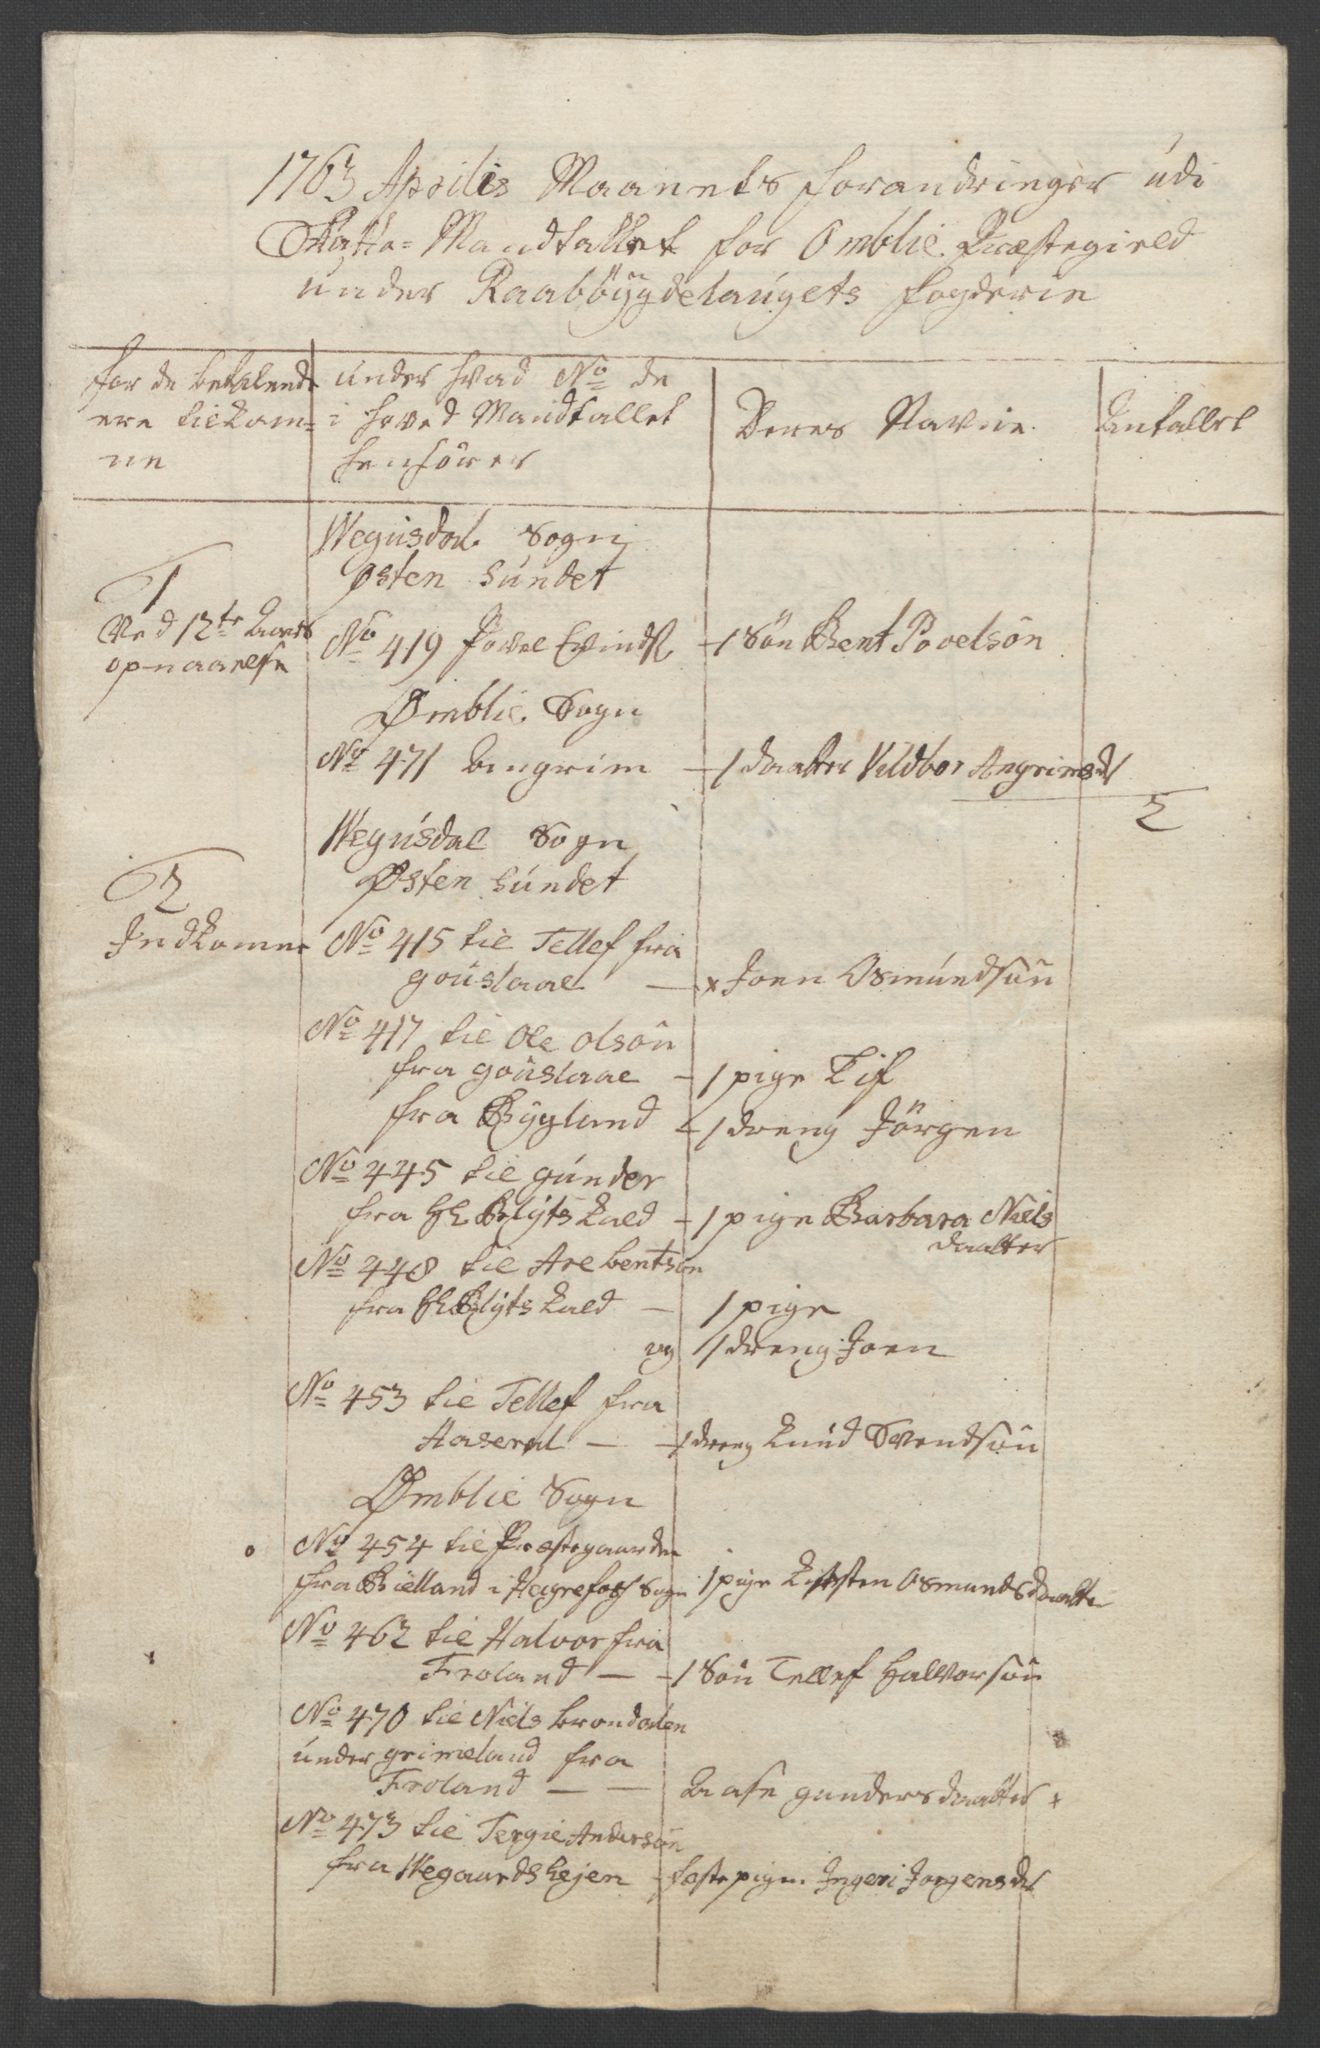 1763 Aprilis Maanets forandringer udi
Skatte-Mandtallet for Omblie Præstegield
under Raabÿgdelaugets fogderie
for de betalende
ere tilkom-
ne
under hvad No de
i hoved Mandtallet
henhörer
Deres Navne
Antallet
Wegusdal Sogn
Østen Sundet
1
Ved 12te Aars
opnaaelse
No 419 Povel Evinds
1 Sön Bent Povelsön
Omblie Sogn
No 471 Angrim
1 daatter Vildbor Angrimsd
2
Wegusdal Sogn
Østen Sundet
2
Indkomne
No 415 til Tellef fra
gouslaae
x Joen Osmundsön
No 417 til Ole olsön
fra gouslaae
1 pige Lif
fra Bÿglund
1 dreng Jörgen
No 445 til gunder
fra Hr Blÿts kald
1 pige Barbara Niels
daatter
No 448 til Are bentsön
fra Hr Blÿts kald
1 pige
og 1 dreng Joen
No 453 til Tellef fra
Haserel
1 dreng Knud Svendsön
Omblie Sogn
No 454 til Præstegaarden
fra Bielland i Sogn
1 pige Kirsten Osmundsdaatter
No 462 til Halvor fra
Froland
1 Sön Tellef Halvorsön
No 470 til Niels brondalen
under grimeland fra
Froland
Aase gundersdaatter x
No 473 til Tergie Andersön
fra Wegaardshejen
fæste pigen Ingeri Jorgensd